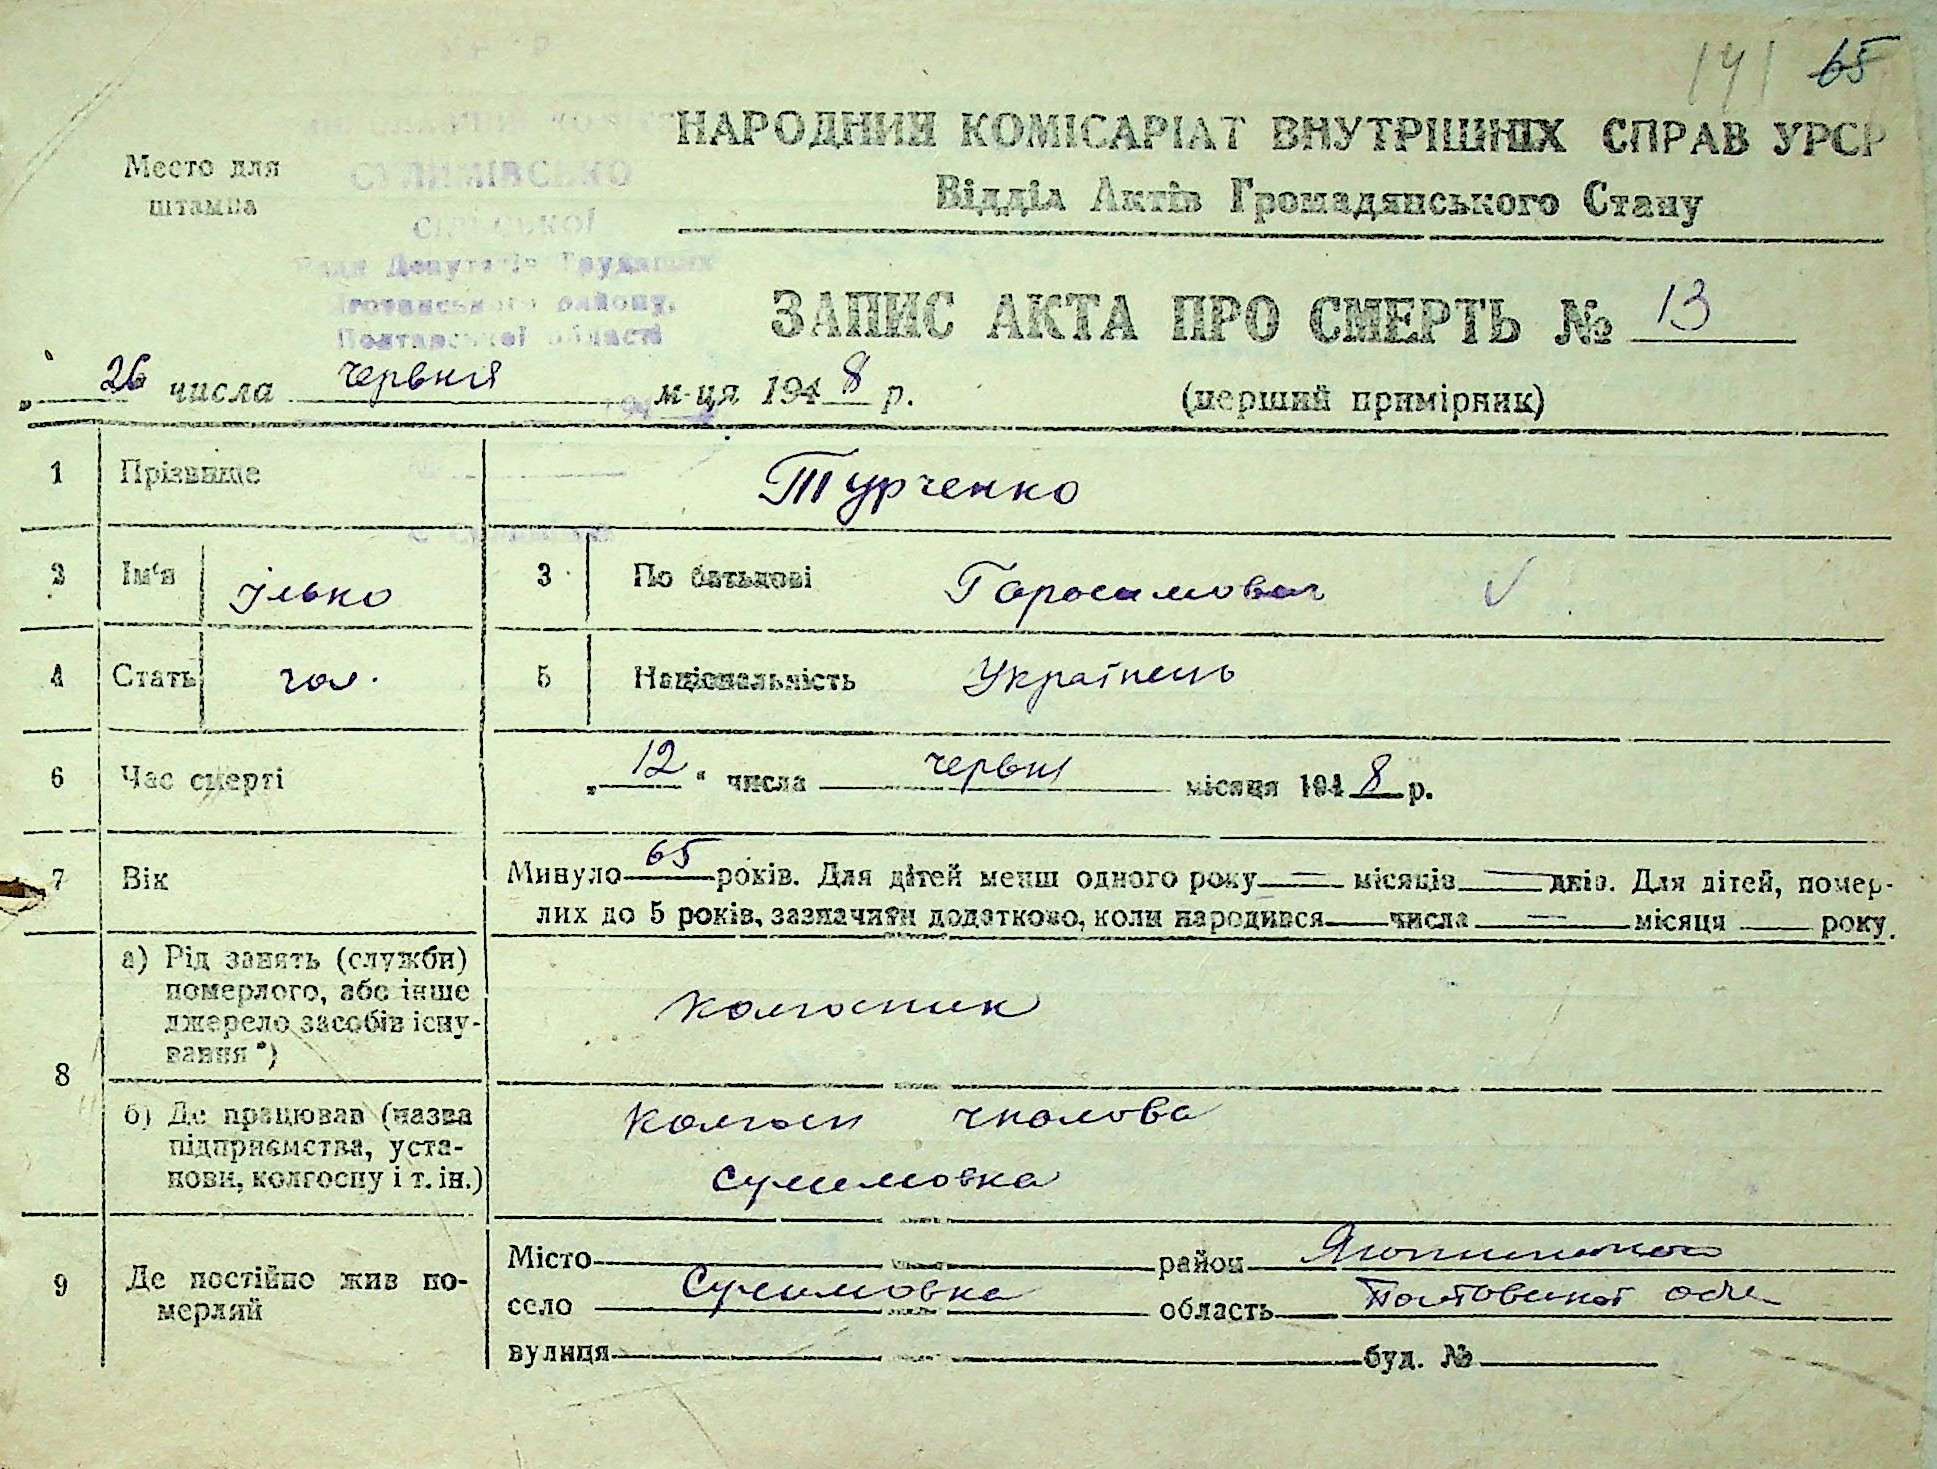 141 65
НАРОДНИЙ КОМІСАРІАТ ВНУТРІШНІХ СПРАВ УРСР
Відділ Актів Громадянського Стану
Место для
штампа
СУЛИМІВСЬКО
СІЛЬСЬКОЇ
Ради Депутатів Трудящих
Яготинського району,
Полтавської області
ЗАПИС АКТА ПРО СМЕРТЬ № 13
„ 26 числа червня м-ця 1948 р.
(перший примірник)
1 Прізвище Турченко
2 Ім'я Ілько 3 По батькові Гарасимович
4 Стать чол. 5 Національність Українець
6 Час смерті „12“ числа червня місяця 1948 р.
7 Вік Минуло 65 років. Для дітей менш одного року — місяців — днів. Для дітей, помер-
лих до 5 років, зазначити додатково, коли народився — числа — місяця — року.
8 а) Рід занять (служби)
померлого, або інше
джерело засобів існу-
вання *)
колгоспник
б) Де працював (назва
підприємства, уста-
нови, колгоспу і т. ін.)
колгосп чкалова
Сулимовка
9 Де постійно жив по-
мерлий
Місто район Яготинського
село Сулимовка область Полтавської обл
вулиця буд. №